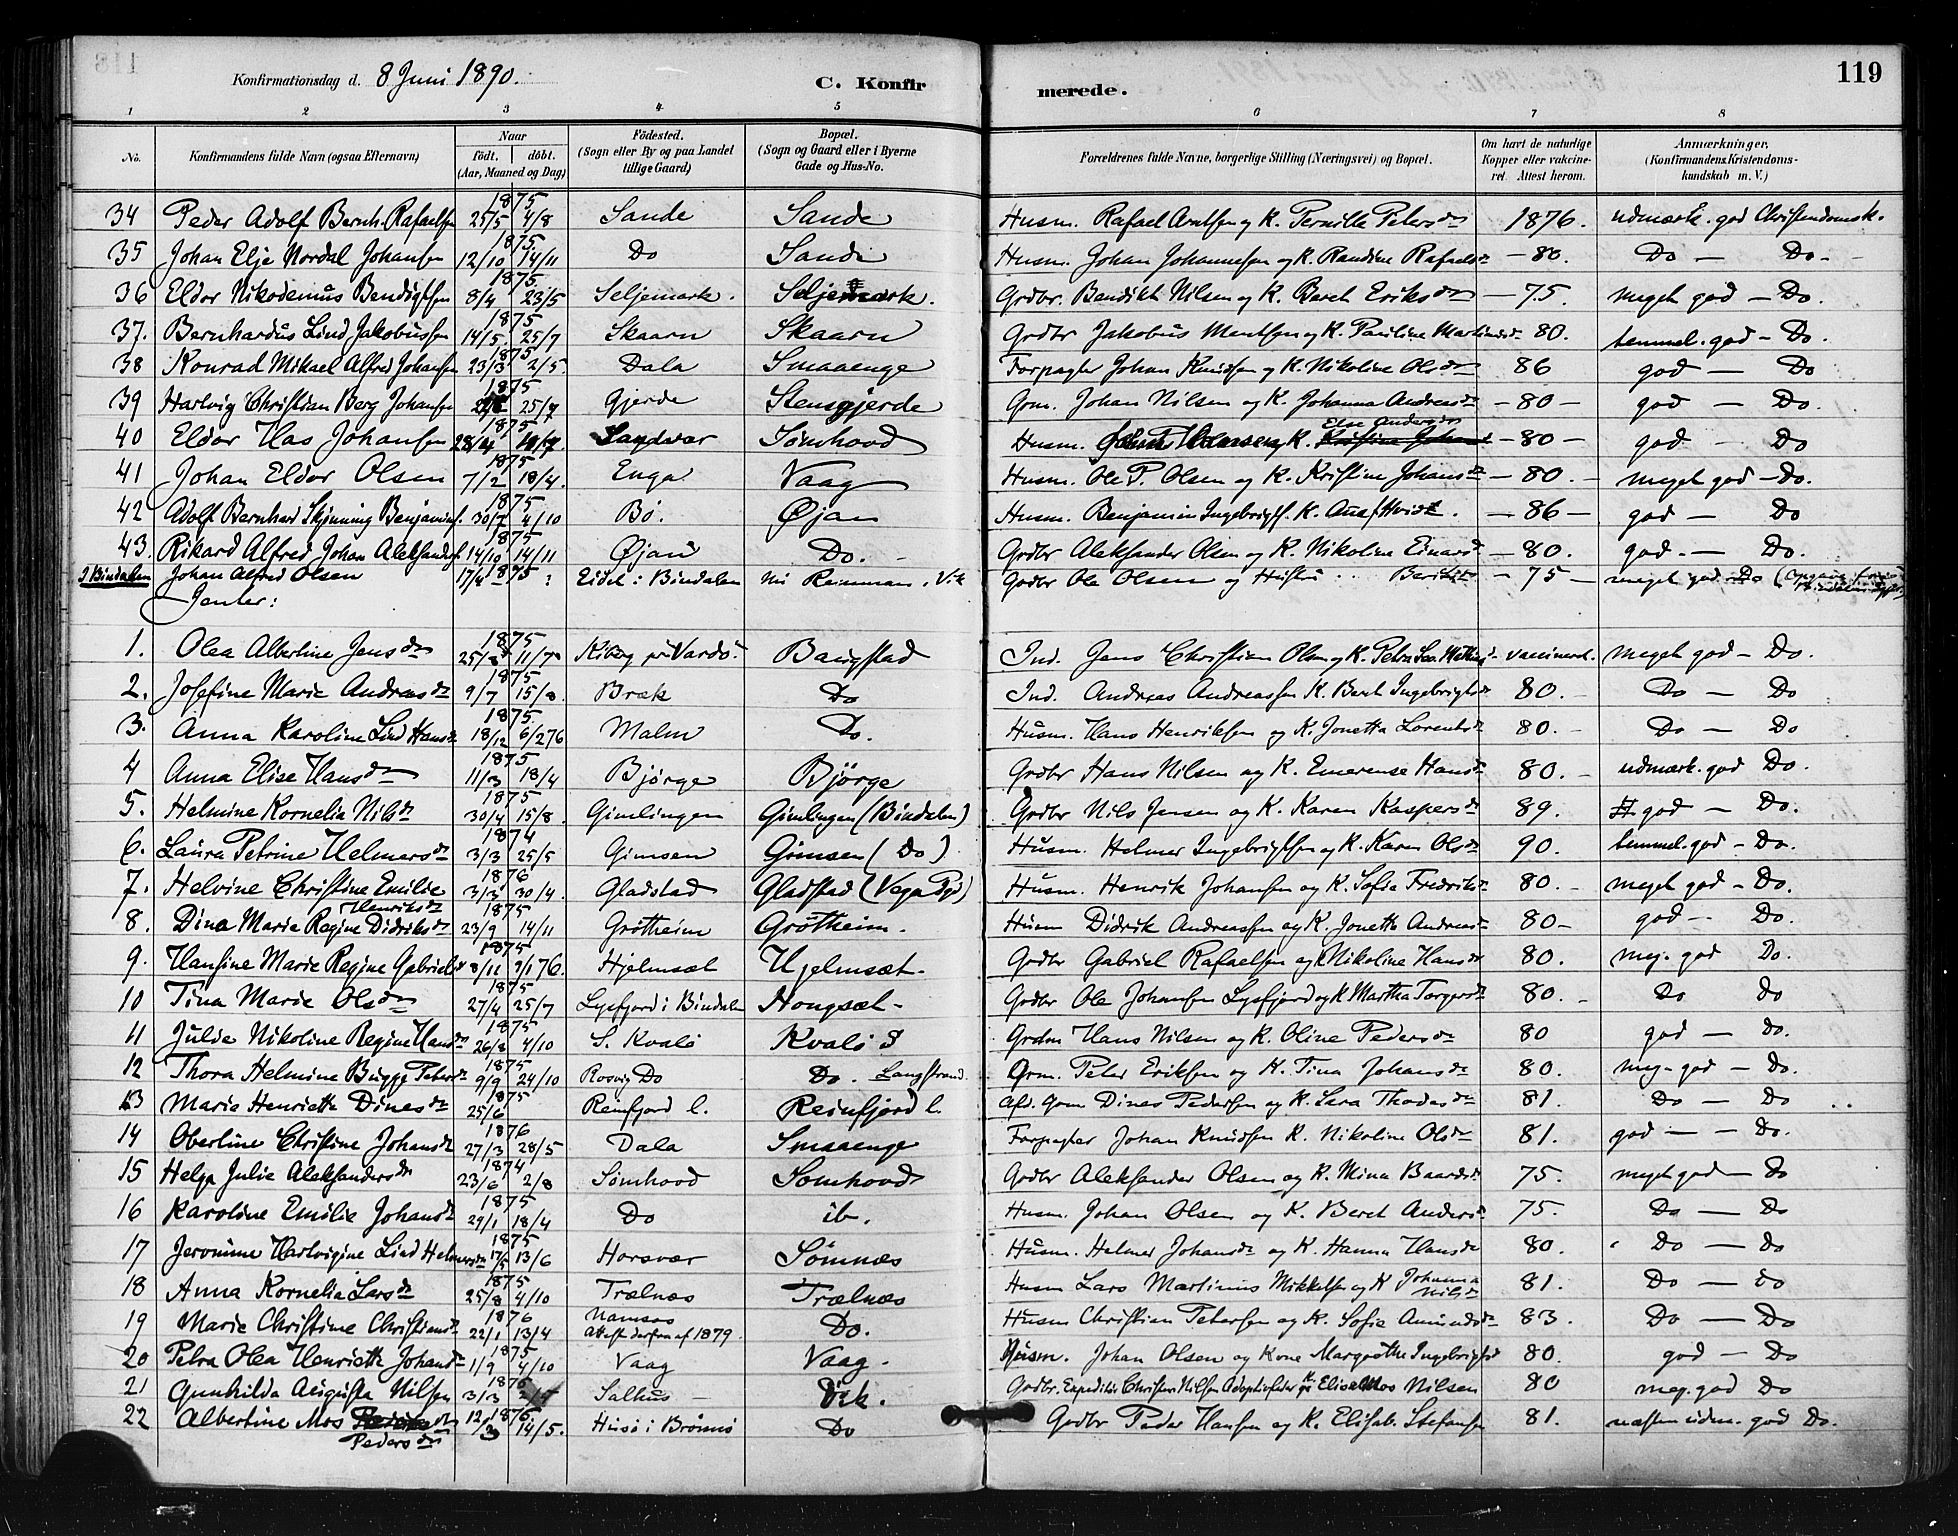 Konfirmationsdag d. 8 Juni 1890. C. Konfirmerede. 119
1 2 3 4 5 6 7 8
No. Konfirmandens fulde Navn (ogsaa Efternavn) Naar født. døbt. (Aar, Maaned og Dag) Födested. (Sogn eller By og paa Landet tillige Gaard) Bopæl. (Sogn og Gaard eller i Byerne Gade og Hus-No. Forældrenes fulde Navne, borgerlige Stilling (Næringsvei) og Bopæl. Om havt de naturlige Kopper eller vakcineret. Attest herom. Anmærkninger. (Konfirmandens Kristendomskundskab m. V.)
34 Peder Adolf Bernh. Rafaelsen 1875 25/5 4/8 Sande Sande Husm. Rafael Arntsen og K. Pernille Petersdr 1876. udmærk. god Christendomsk.
35 Johan Elje Nordal Johansen 1875. 12/10 14/11 Do Sande Husm. Johan Johannesen og K. Randine Rafaelsdr - 80. Do - Do -
36 Eldor Nikodemus Bendigtsen 1875. 8/4 23/5 Seljemark. Seljemark. Grdbr. Bendikt Nilsen og K. Beret Eriksdr - 75. meget god - Do.
37. Bernhardus Lind Jakobussen 1875 14/5. 25/7 Skaarn Skaarn Grdbr Jakobus Mentsen og K. Pauline Martinusdr 80. temmel. god - Do.
38 Konrad Mikael Alfred Johansen 1875 23/3 2/5. Dala Smaaenge Forpagter Johan Knudsen og K. Nikoline Olsdr 86 god - Do
39 Hartvig Christian Berg Johansen 1875 25/7 Gjerde Stensgjerde Grm. Johan Nilsen og K. Johanna Andreasdr - 80 - god - Do.
40 Eldor Has Johansen 1875 28/4 Sandvær Sømhovd Husm. K. Else Andersdr - 80 - god - Do
41 Johan Eldor Olsen 1875 7/2 18/4. Enga Vaag Husm. Ole P. Olsen og K. Kristine Johansdr - 80. - meget god - Do.
42 Adolf Bernhard Skjønning Benjamins. 1875 30/7 4/10 Bø. Øjan Husm. Benjamin Ingebrigts. K. - 86 - god - Do
43. Rikard Alfred Johan Aleksanders. 1875 14/10 14/11 Øjan Do. - Grdbr Aleksander Olsen og K. Nikoline Einarsdr - 80. god. - Do.
I Bindalen Johan Alfred Olsen 17/4 1875 : Eidet i Bindalen nu Ramman i Vik Godbr Ole Olsen og Hustru . . - 75 - meget god Do
Jenter:
1. Olea Albertine Jensdr 1875 25/3 11/7 Kiberg pr Vardø. Bangstad Ind. Jens Christian Olsen og K. Petra vaccineret. meget god - Do.
2. Josefine Marie Andreasdr 1875 9/7 15/8. Bræk Do Ind. Andreas Andreassen K. Beret Ingebrigtsdr 80. - Do - Do
3. Anna Karoline Lind Hansdr 1875. 18/12 6/276 Malm Do. Husm. Hans Henriksen og K. Jonetta Lorentsdr 80. - Do - Do
4 Anna Elise Hansdr 1875 11/3 18/4 Bjørge Bjørge Grdbr Hans Nilsen og K. Emerense Hansdr 80. - udmærk. god Do.
5. Helmine Kornelia Nilsdr 1875 30/4 15/8. Gimlingen Gimlingen (Bindalen) Grdbr Nils Jensen og K. Karen Kaspersdr 89. god - Do.
6. Laura Petrine Helmersdr 1874 3/3 25/5 Gimsen Gimsen (Do) Husm. Helmer Ingebrigtsen og K. Karen Olsdr 90. temmel. god - Do.
7. Helvine Christine Emilie Henriksdr 1876 3/3 30/4. Gladstad Gladstad (Vega Pgd) Husm. Henrik Johansen og K. Sofia Fredriksdr 80. - meget god - Do.
8. Dina Marie Regine Didriksdr 1875 23/9 14/11 Grötheim Grötheim. Husm Didrik Andreassen og K. Jonetta Andreasdr 80 - god - Do.
9. Hansine Marie Regine Gabrielsdr 1875 8/11 9/176. Hjelmsæt Hjelmsæt. Godbr Gabriel Rafaelsen og K Nikoline Hansdr 80. meg. god Do.
10 Tina Marie Olsdr 1875 27/4 25/7 Lysfjord i Bindalen Hongsæt - Grdbr Ole Johansen Lysfjord og K Martha Torgersdr 80. - Do do
11 Julie Nikoline Regine Hansdr 1875 26/8 4/10 S. Kvalö Kvalö S Grdm Hans Nilsen og K. Oline Pedersdr 80 god - Do.
12 Thora Helmine Bugge Petersdr 1875 9/9 24/10 Rosvig Do Do. Langstrand. Grm. Peter Eriksen og K. Tina Johansdr 80. meg. god - Do.
13 Marie Henriette Dinesdr 1875 25/6 Reinfjord l. Reinfjord l. afd. Grm Dines Pedersen og K. Sara Thodesdr 81. Do - Do
14 Oberline Christine Johansdr 1876 27/3 28/5 Dala Smaaenge Forpagter Johan Knudsen K. Nikoline Olsdr 81. god - - Do.
15 Helga Julie Aleksandersdr 1874 23/6 2/8 Sømhovd Sömhovd Grdbr Aleksander Olsen og K. Mina Baardsdr 75. meget god - Do
16 Karoline Emilie Johansdr 1875 29/1 18/4 Do ib. Husm. Johan Olsen og K. Beret Andersdr 75. Do - Do
17 Jeronime Hartvigine Lind Helmersdr 1875 17/5 13/6 Horsvær Sømnæs Husm. Helmer Johansdr og K. Hanna Hansdr 80. Do - do
18 Anna Kornelia Larsdr 1875 25/8 4/10 Trælnæs Trælnæs Husm Lars Martinus Mikkelsen og K Johanna Nilsdr 81. Do - do
19 Marie Christine Christiansdr 1876 22/1 13/4 Namsos Attest derfra af 1879. Do. Husm Christian Petersen og K. Sofie Amundsdr 83. Do - Do
20 Petra Olea Henriette Johansdr 1875 1/9 4/10 Vaag Vaag. Husm. Johan Olsen og Kone Margrethe Ingebrigtsd 80. god - Do
21 Gunhilda Augusta Nilsen 1876 3/3 Salhus - Vik. Godbr. Expeditør Christian Nilsen Adoptivfader og Elise Mos Nilsen 80 meg. god Do
22 Albertine Mos Pedersdr 1876 12/3 14/5. Husö i Brönnö Do Grdbr Peder Hansen og K. Elisab. Stefansen 81. næsten udm. god Do.